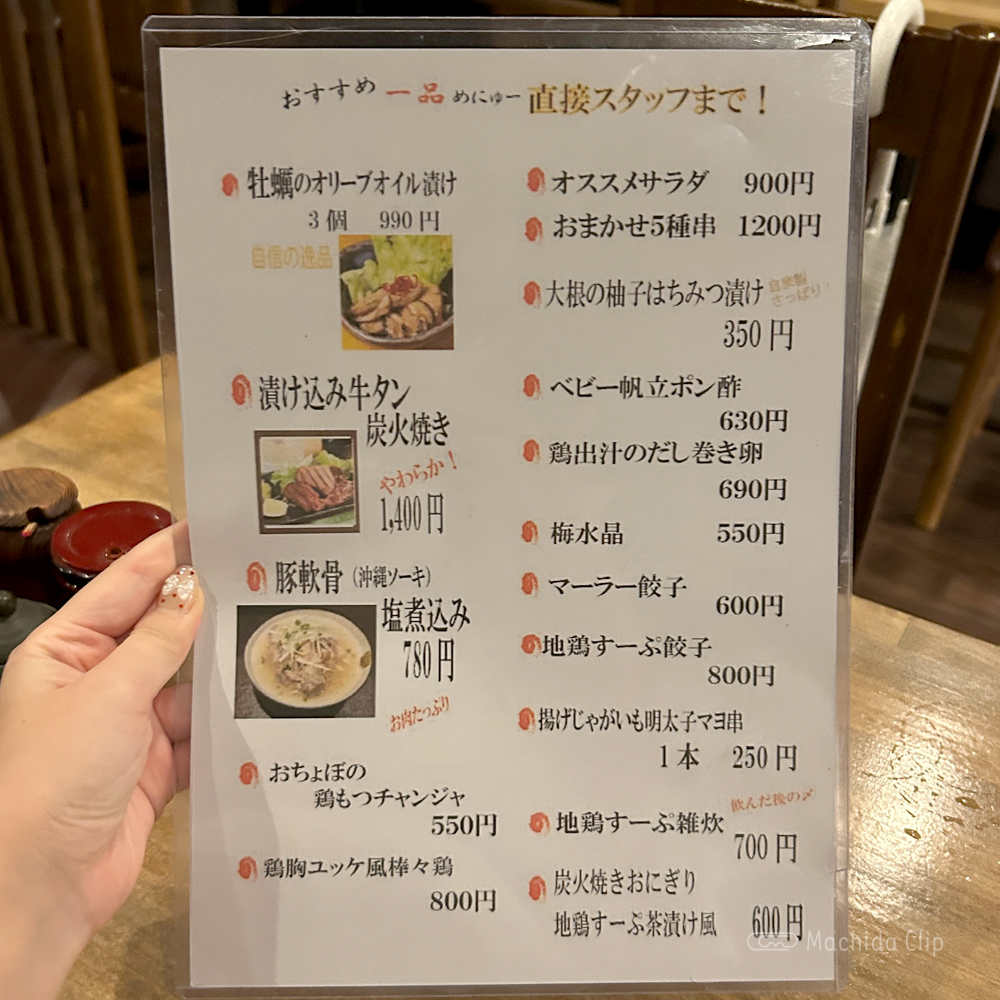 おすすめ 一品 めにゅー 直接スタッフまで！
牡蠣のオリーブオイル漬け
3個 990円
自信の逸品
漬け込み牛タン
炭火焼き
やわらか！
1,400円
豚軟骨（沖縄ソーキ）
塩煮込み
780円
お肉たっぷり
おちょぼの
鶏もつチャンジャ
550円
鶏胸ユッケ風棒々鶏
800円
オススメサラダ 900円
おまかせ5種串 1200円
大根の柚子はちみつ漬け
自家製
さっぱり！
350円
ベビー帆立ポン酢
630円
鶏出汁のだし巻き卵
690円
梅水晶 550円
マーラー餃子
600円
地鶏すーぷ餃子
800円
揚げじゃがいも明太子マヨ串
1本 250円
飲んだ後の〆
地鶏すーぷ雑炊
700円
炭火焼きおにぎり
地鶏すーぷ茶漬け風 600円
Machida Clip